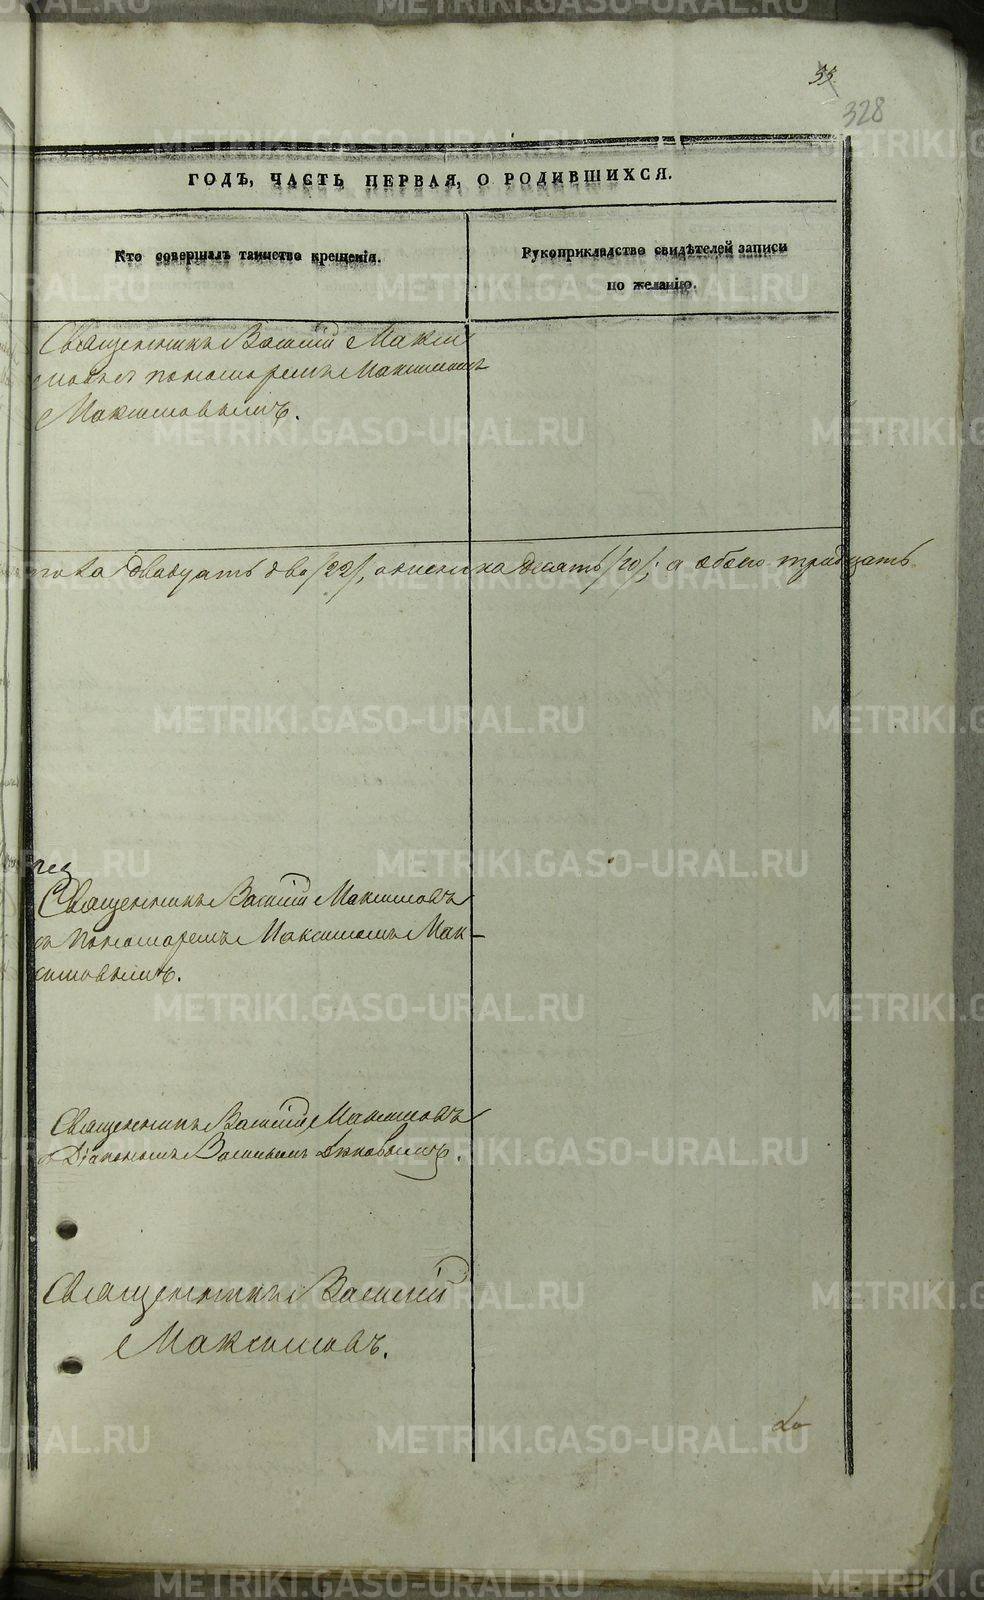 55.
328
ГОДЪ, ЧАСТЬ ПЕРВАЯ, О РОДИВШИХСЯ.
Кто совершалъ таинство крещенія.
Рукоприкладство свидѣтелей записи
по желанію.
Священникъ Василій Макси
мовъ съ пономаремъ Максимомъ
Максимовымъ.
пола двадцать два /22/, а женска десять /10/; а обоего тридцать
Священникъ Василій Максимовъ
съ пономаремъ Максимомъ Мак-
симовымъ.
Священникъ Василій Максимовъ
съ Діакономъ Василіемъ
Священникъ Василій
Максимовъ.
METRIKI.GASO-URAL.RU